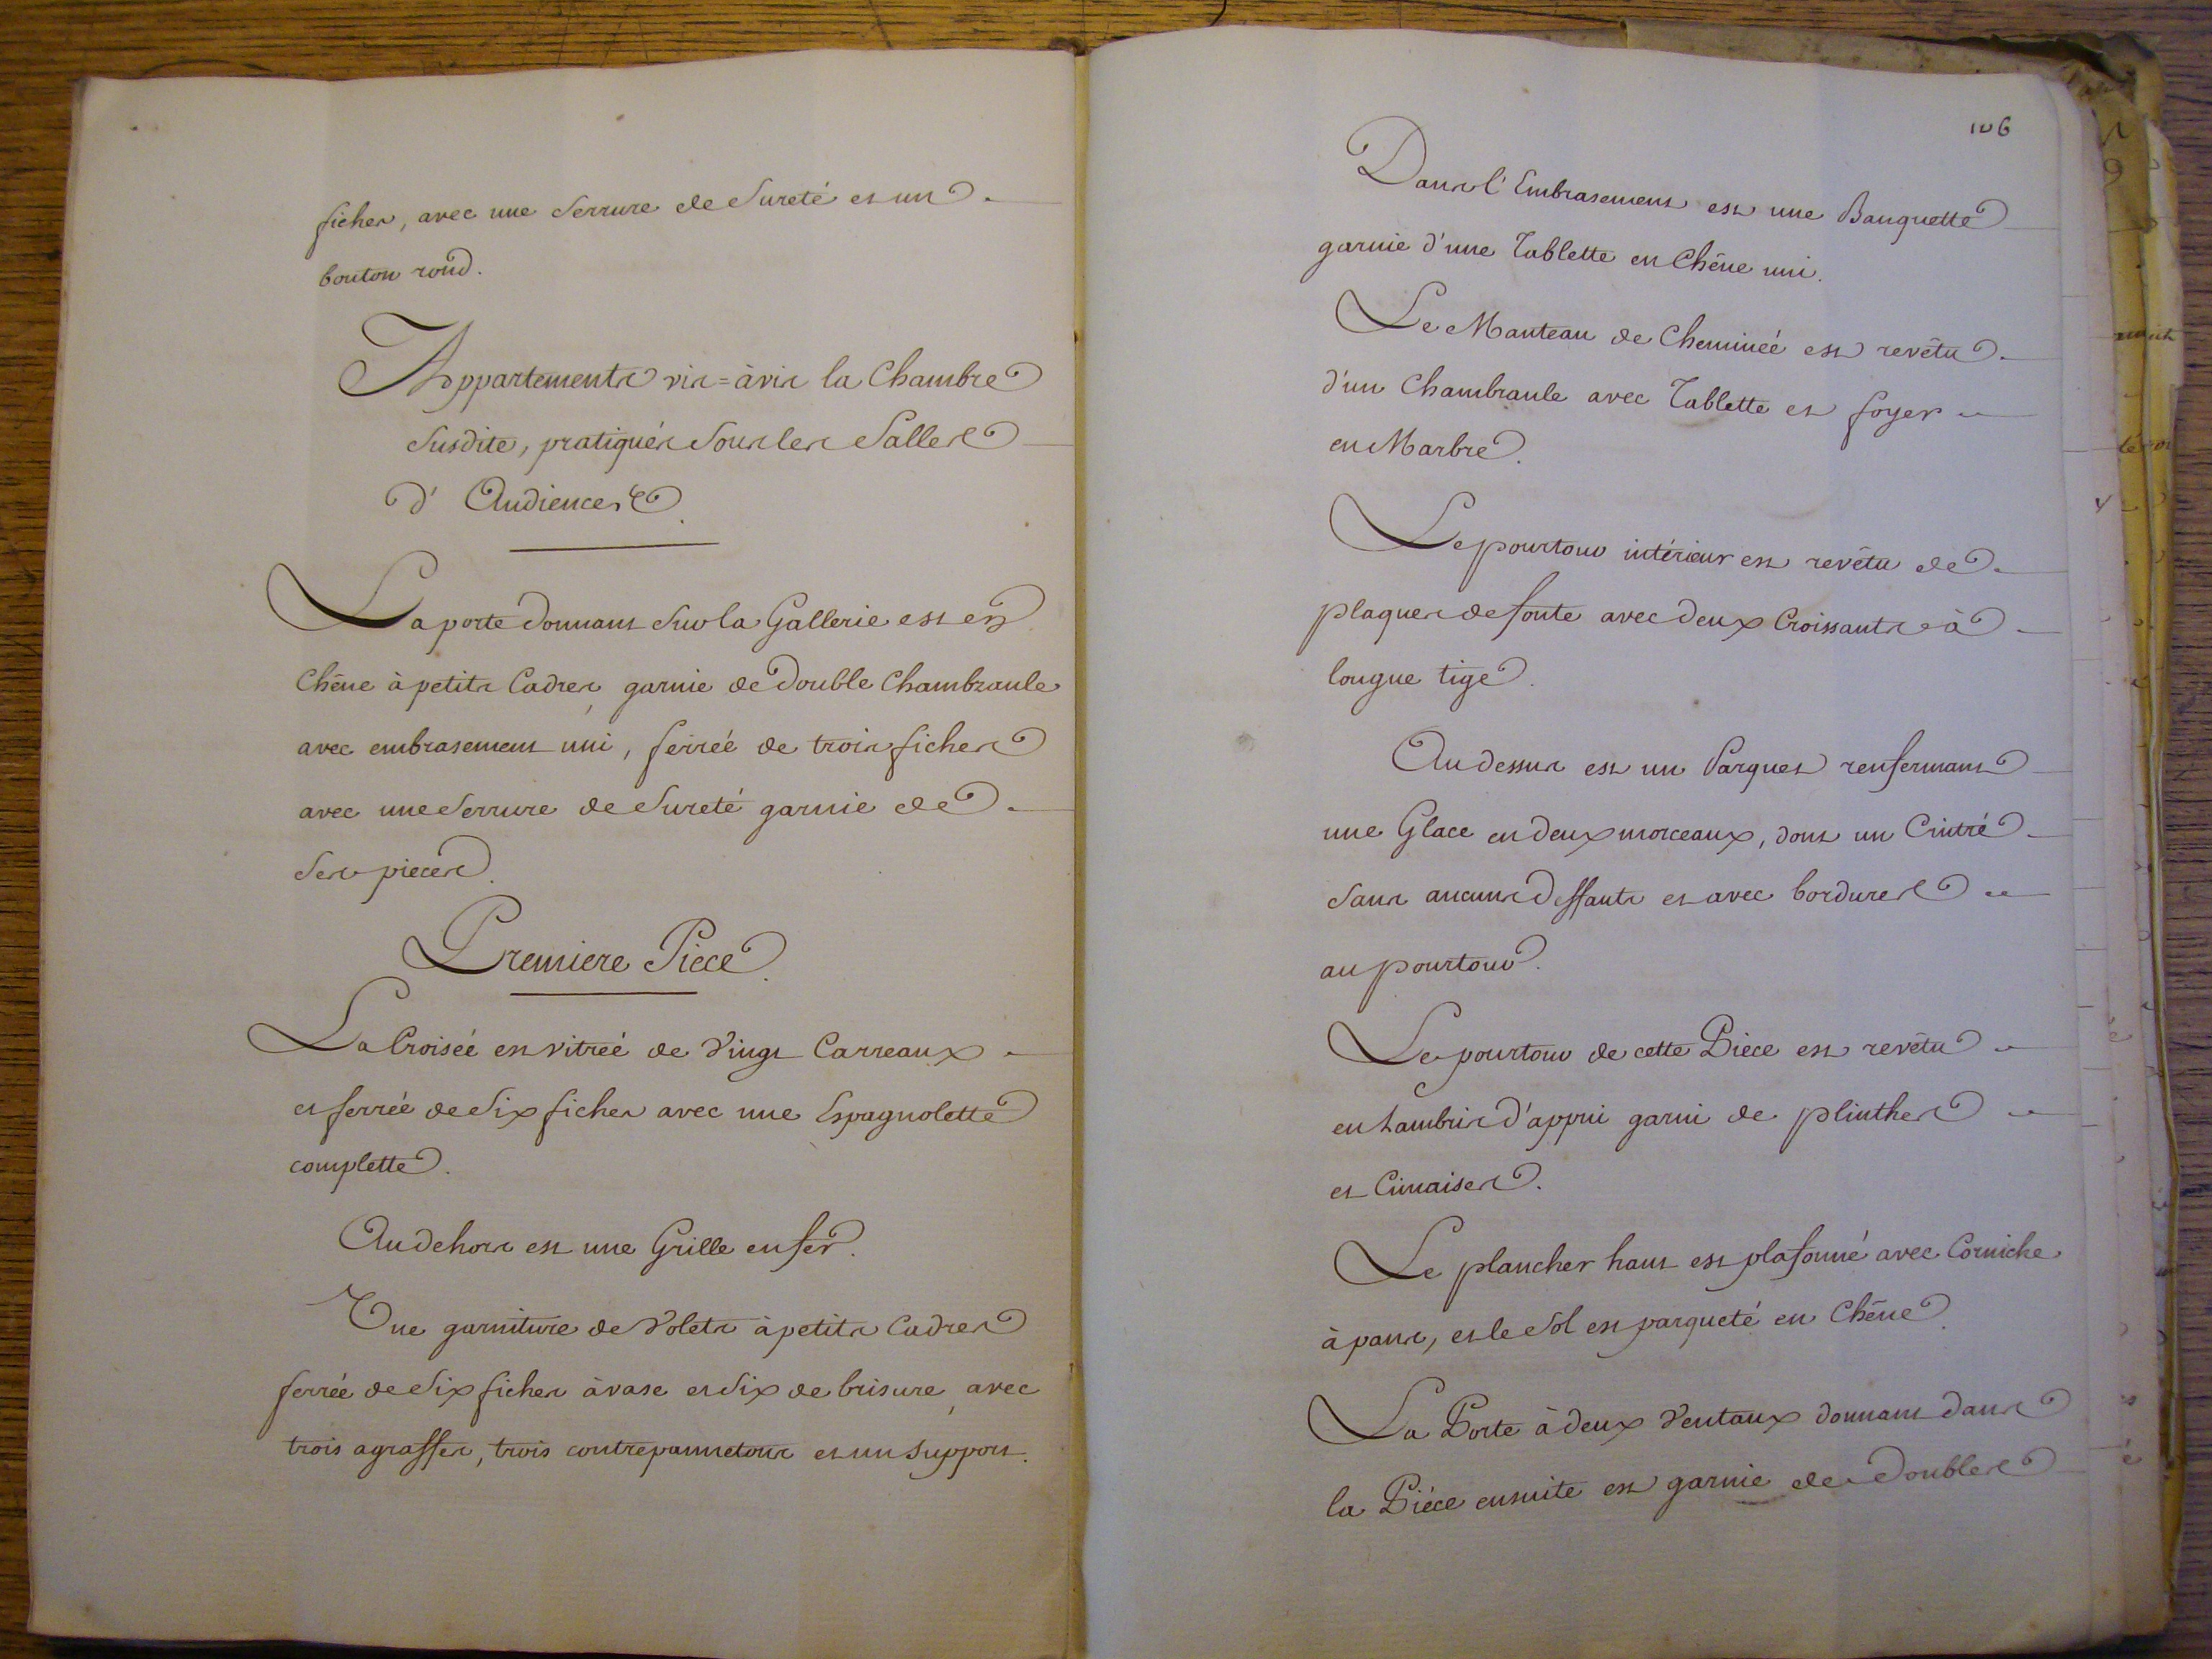 fiches, avec une Serrure de Sureté et un
bouton rond.
Appartements vis=à vis la Chambre
Susdite, pratiqués Sous les Salles
d'Audiences.
La porte donnant Sur la Gallerie est en
Chêne à petits Cadres, garnie de double Chambranle
avec embrasement uni, ferrée de trois fiches
avec une Serrure de Sureté garnie de
Ses pieces.
Premiere Piece.
La Croisée est vitrée de Vingt Carreaux
et ferrée de Six fiches avec une Espagnolette
complette.
Au dehors est une Grille en fer.
Une garniture de Volets à petits Cadres
ferrée de Six fiches à vase et Six de brisure, avec
trois agraffes, trois contrepannetons et un Support.
106
Dans l'Embrasement est une Banquette
garnie d'une Tablette en Chêne uni.
Le Manteau de Cheminée est revêtu
d'un Chambranle avec Tablette et foyer
en Marbre.
Le pourtour intérieur est revêtu de
plaques de fonte avec deux Croissants à
longue tige.
Au dessus est un Parquet renfermant
une Glace en deux morceaux, dont un Cintré
Sans aucuns deffauts et avec bordures
au pourtour.
Le pourtour de cette Piece est revêtu
en Lambris d'appui garni de plinthes
et Cimaises.
Le plancher haut est plafonné avec Corniche
à pans, et le Sol est parqueté en Chêne.
La Porte à deux Ventaux donnant dans
la Piéce ensuite est garnie de doubles